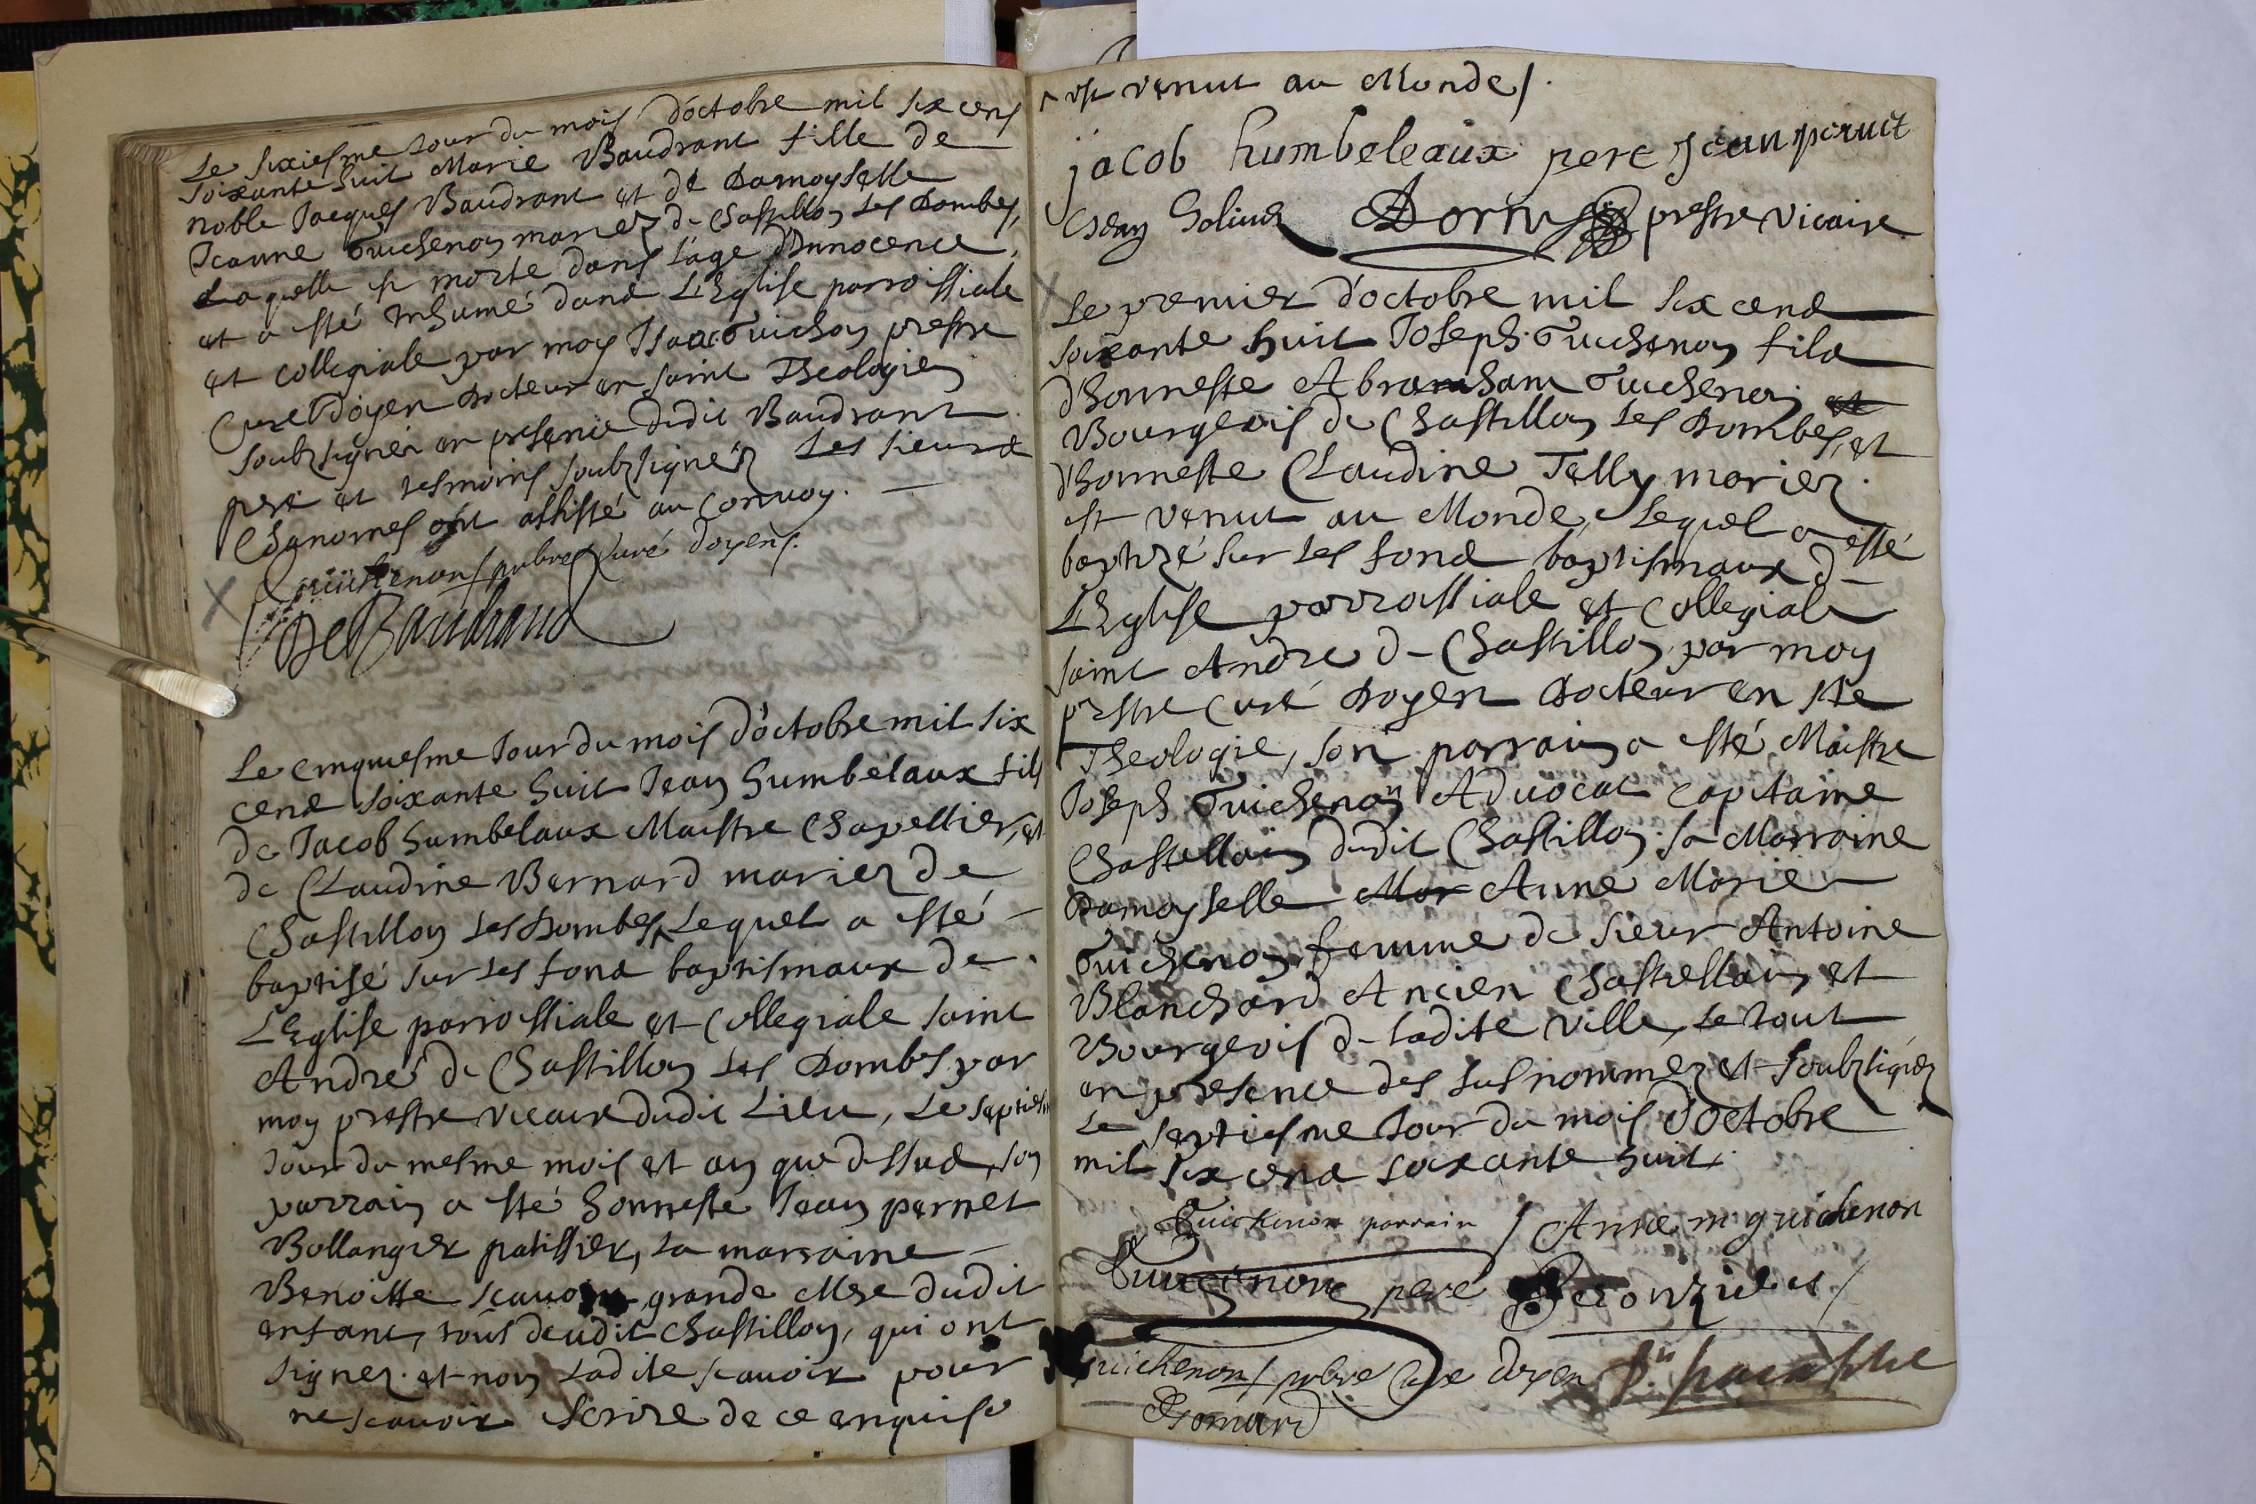 Le sixiesme Jour du mois d'octobre mil six cens
soixante huit Marie Baudrant fille de
noble Jacques Baudrant et de Damoyselle
Jeanne Guichenon mariez de Chastillon les Dombes,
Laquelle est morte dans l'age d'Innocence,
et a esté Inhumé dans L'Eglise parroissiale
et collegiale par moy Isaac Guichon prestre
Curé Doyen Docteur en saint Theologie
soubzsigné en presence dudit Baudrant
pere et tesmoins soubzsignéz Les sieurs
Chanoines ont assisté au Convoy.
Guichenon pbre Curé doyen.
De Baudrand
Le cinquiesme Jour du mois d'octobre mil six
cens soixante huit Jean humbelaux fils
de Jacob humbelaux Maistre Chapellier, et
de Claudine Bernard mariez de
Chastillon les Dombes, Lequel a esté
baptisé sur les fons baptismaux de
L'Eglise parrossiale et Collegiale saint
André de Chastillon les Dombes par
moy prestre vicaire dudit Lieu, Le septiesm
Jour du mesme mois et an que dessus, son
parrain a esté honneste Jean pernet
Bollangier patissier, La marraine
Benoitte scavoir grande Mere dudit
enfant, tous deudit Chastillon, qui ont
signez et non Ladite scavoir pour
ne scavoir Escrire de ce enquise
est venut au Monde/.
jacob humbeleaux pere Jean pernet
Dorus prestre vicaire
Le premier d'octobre mil six cens
soixante huit Joseph Guichenon fils
d'honneste Abramham Guichenon et
Bourgeois de Chastillon les Dombes, et
d'honneste Claudine Telly mariez.
est venut au Monde, Lequel a esté
baptizé sur les fons baptismaux d
L'Eglise parrossiale et Collegiale
saint André d Chastillon par moy
prestre Curé Doyen Docteur en Ste
Theologie, son parrain a esté Maistre
Joseph Guichenon Advocat Capitaine
Chastellain dudit Chastillon. sa Marraine
Damoyselle Mar Anne Marie
Guichenon femme de sieur Antoine
Blanchard Ancien Chastellain et
Bourgeois d ladite Ville, Le tout
en presence des susnommez et soubzsignez
Le septiesme Jour du mois d'Octobre
mil six cens soixante huit.
Guichenon parrain / Anne m guichenon
Guichenon pere
Guichenon pbre Cure doyen